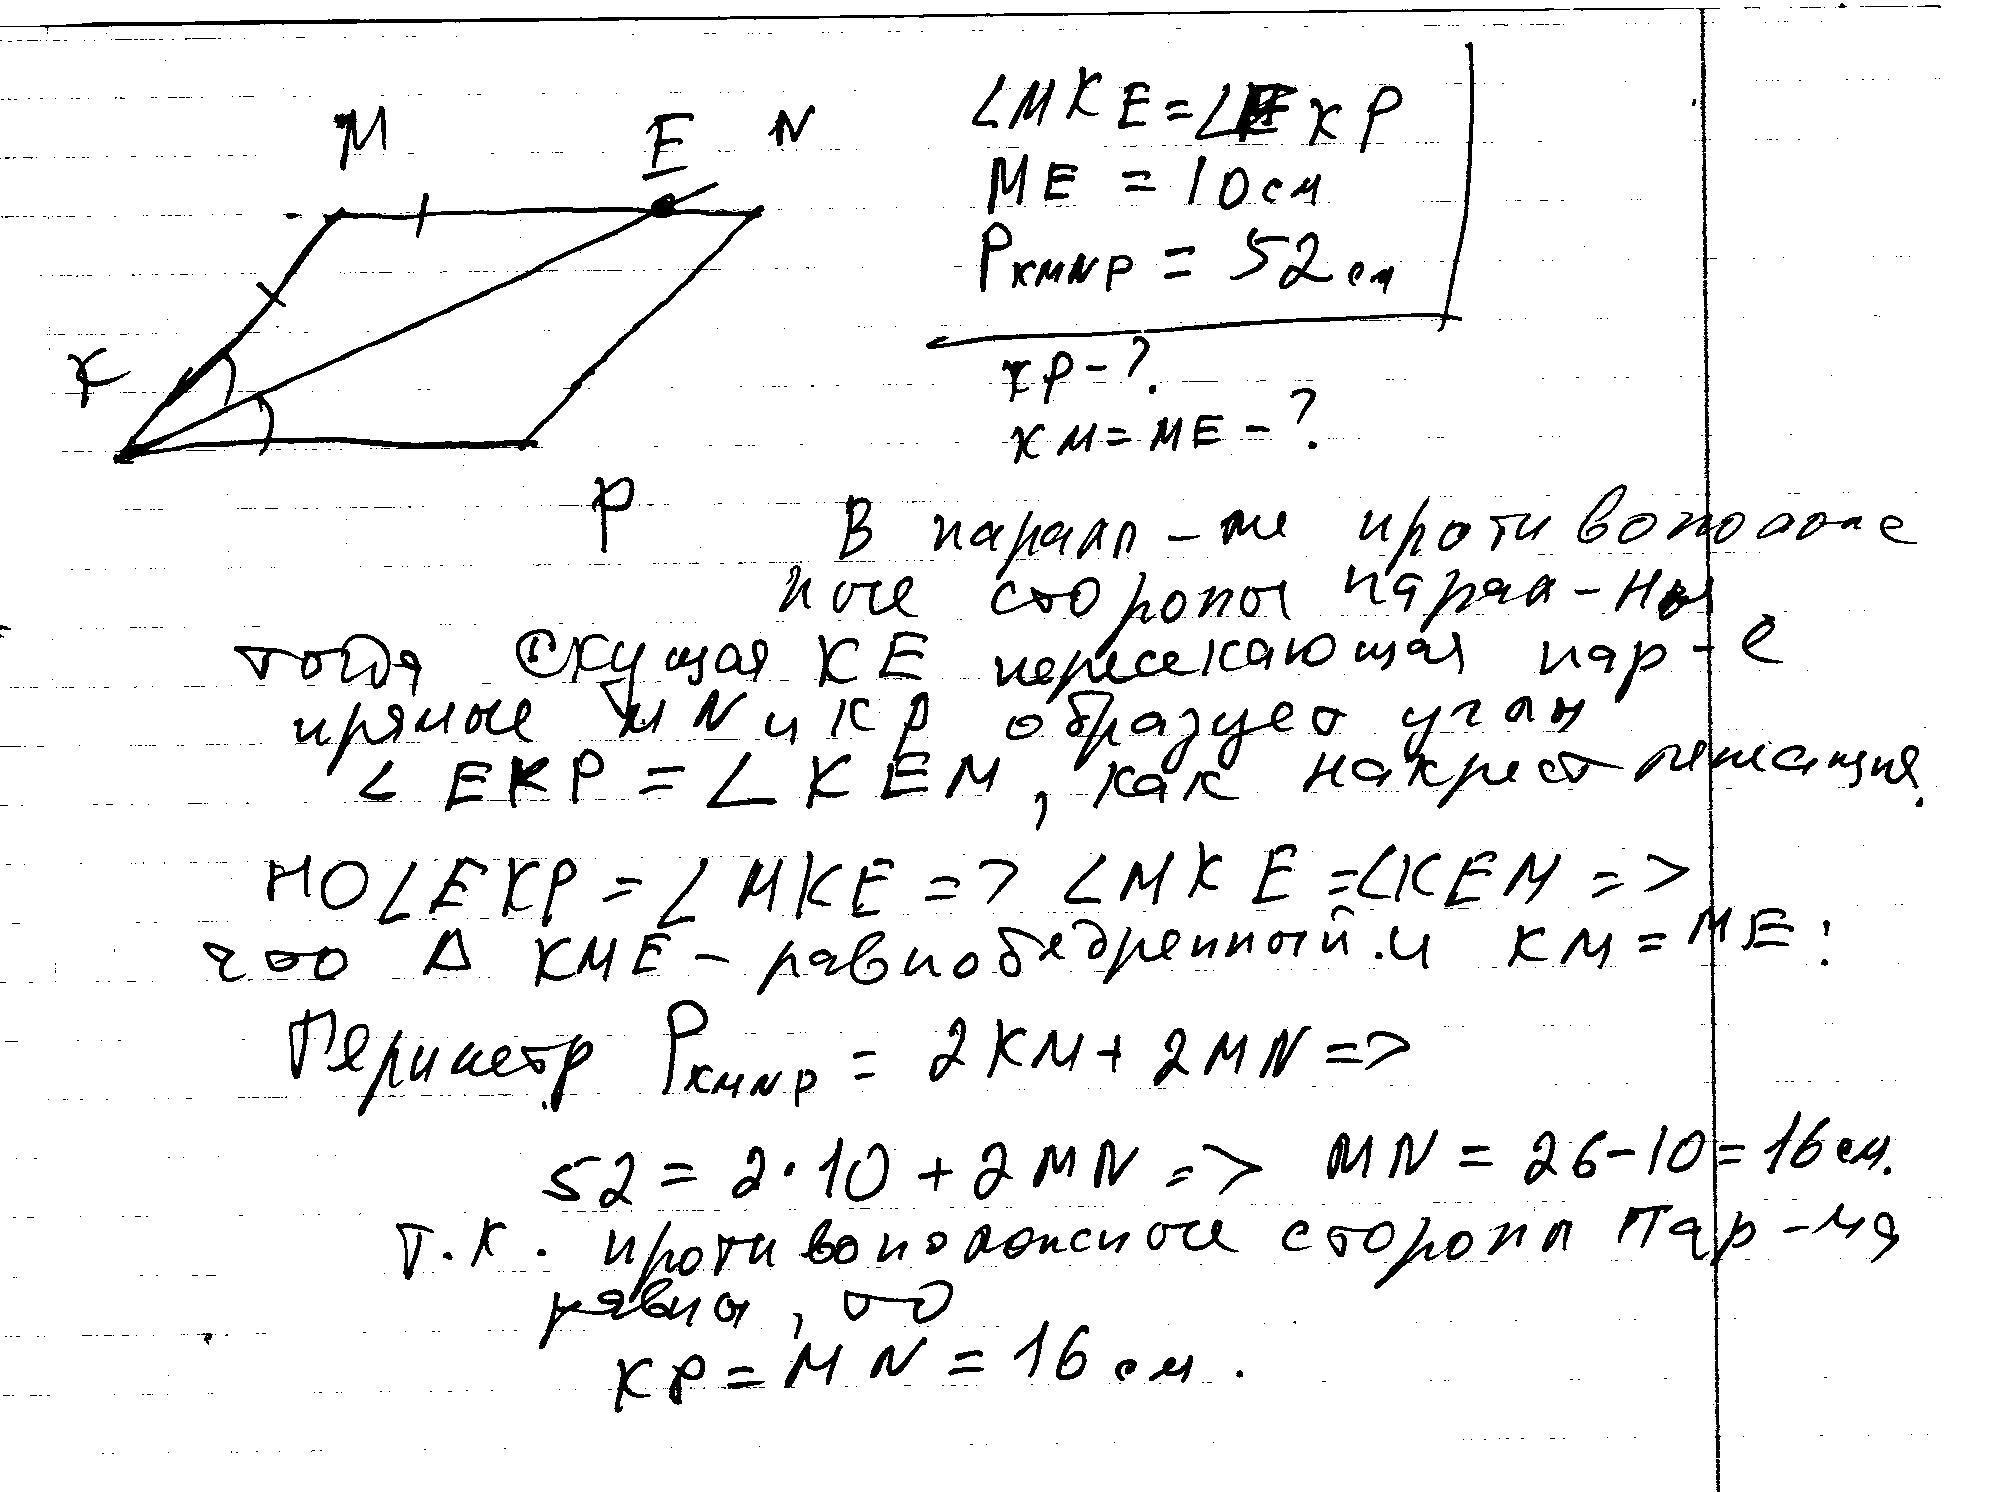 M E N
K
P
∠MKE = ∠EKP
ME = 10 см
P_KMNP = 52 см
KP - ?
KM = ME - ?
В паралл-ме противополож
ные стороны парал-ны
тогда секущая KE пересекающая пар-е
прямые MN и KP образует углы
∠EKP = ∠KEM, как накрест лежащия.
НО ∠EKP = ∠MKE => ∠MKE = ∠KEM =>
что Δ KME - равнобедренный и KM = ME.
Периметр P_KMNP = 2KM + 2MN =>
52 = 2·10 + 2MN => MN = 26-10 = 16 см.
Т.К. противоположные стороны пар-ма
равны, то
KP = MN = 16 см.